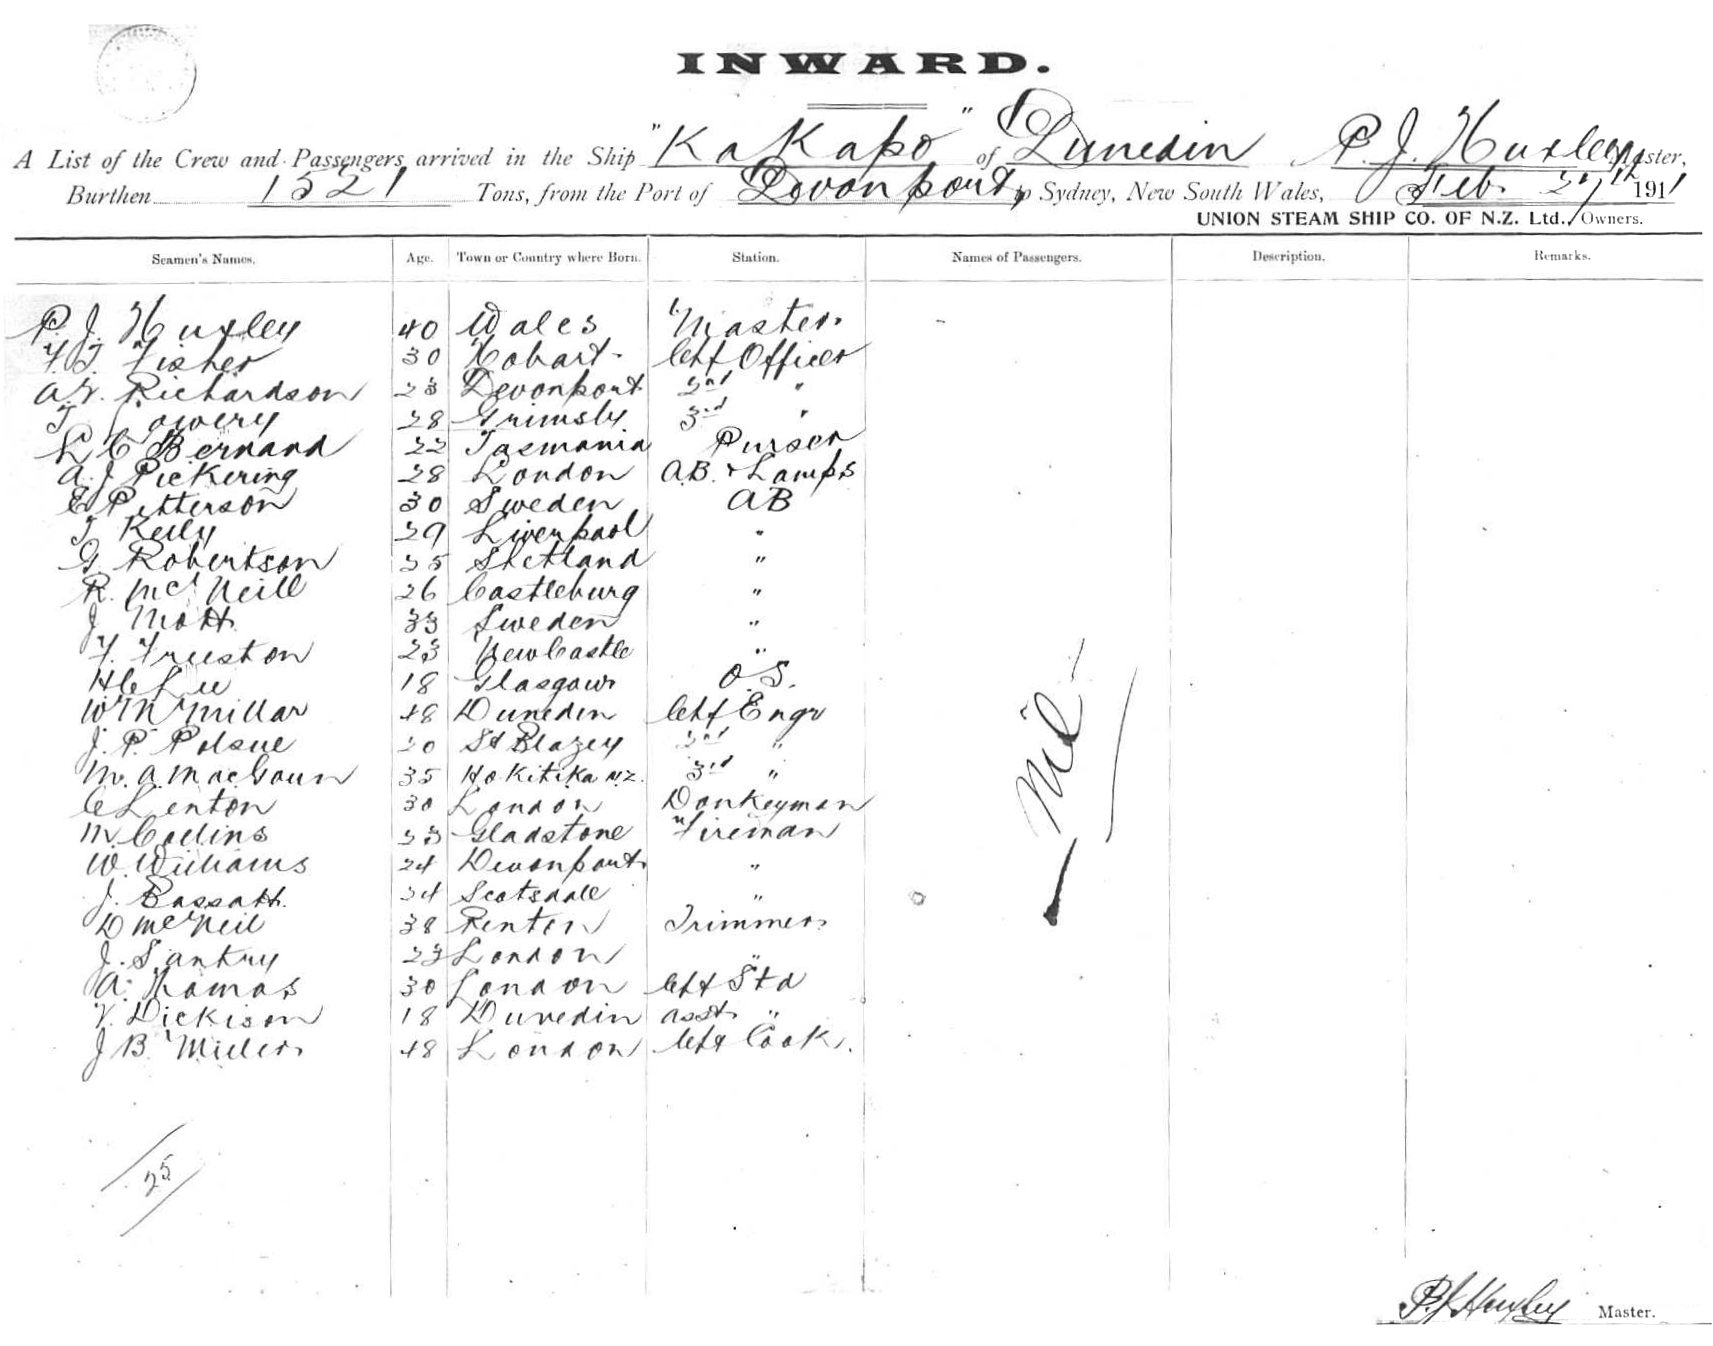 INWARD.
A List of the Crew and Passengers arrived in the Ship "KaKapo" of Dunedin P. J. Huxley Master,
Burthen 1521 Tons, from the Port of Devonport, to Sydney, New South Wales, Feb. 27th 1911
UNION STEAM SHIP CO. OF N.Z. Ltd., Owners.
Seamen's Names. Age. Town or Country where Born. Station. Names of Passengers. Description. Remarks.
P. J. Huxley 40 Wales Master
F. T. Fisher 30 Hobart Chf Officer
A. V. Richardson 23 Devonport 2nd "
T Lowery 28 Grimsby 3rd "
L C Bernard 22 Tasmania Purser
A. J Pickering 28 London A.B. + Lamps
E Petterson 30 Sweden AB
T Keily 29 Liverpool "
G Robertson 35 Shetland "
R. McNeill 26 Castleburg "
J Mott 33 Sweden "
F. Fruston 23 NewCastle "
H C Lee 18 Glasgow O.S.
W McMillar 48 Dunedin Chf Engr
J. P. Polsue 30 St Blazey 2nd "
M. A. MacGoun 35 Hokitika N.Z. 3rd "
C Lenton 30 London Donkeyman
M Collins 33 Gladstone Fireman
W. Williams 24 Devonport "
J. Bassatt 34 Scotsdale "
D McNeil 38 Renton Trimmer
J. Santry 23 London "
A. Thomas 30 London Chf Std
V. Dickison 18 Dunedin asst "
J B. Miller 48 London Chf Cook.
Nil
25
P. J. Huxley Master.